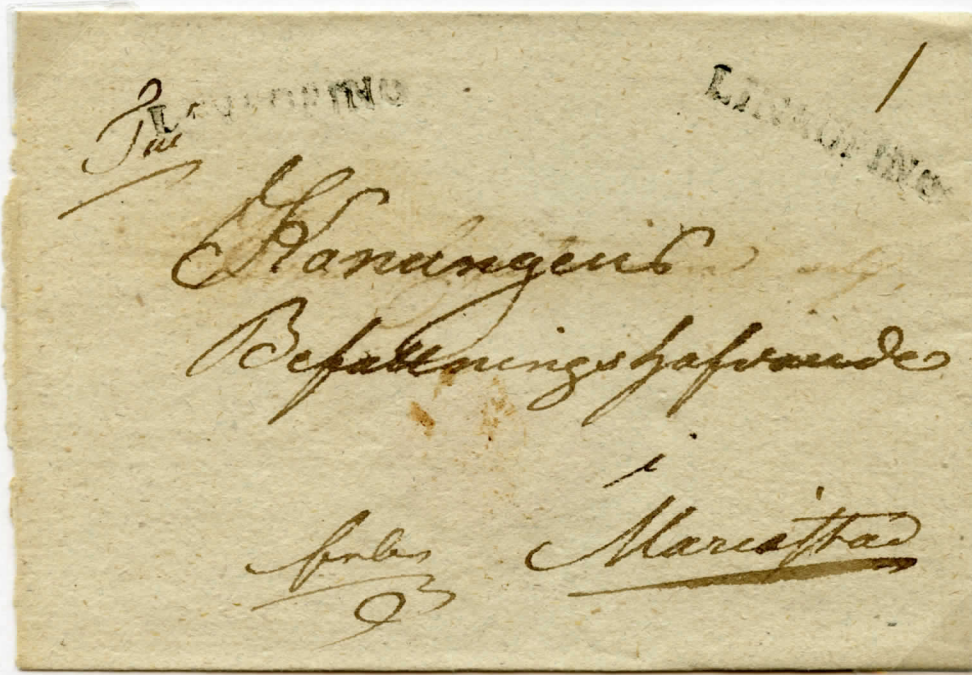 LINKÖPING LINKÖPING
Till
Konungens
Befallningshafvande
i
Mariestad